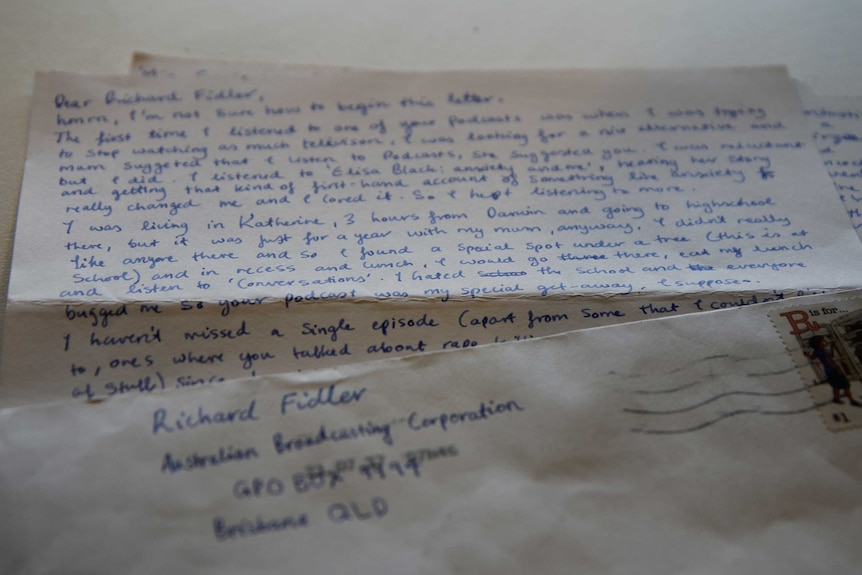 Dear Richard Fidler,
hmm, I'm not sure how to begin this letter.
The first time I listened to one of your podcasts was when I was trying
to stop watching as much television, I was looking for a nice alternative and
mum suggested that I listen to Podcasts, she suggested you. I was reluctant
but I did. I listened to 'Elisa Black: anxiety and me', hearing her story
and getting that kind of first-hand account of something like anxiety
really changed me and I loved it. So I kept listening to more.
I was living in Katherine, 3 hours from Darwin and going to highschool
there, but it was just for a year with my mum, anyway, I didn't really
like anyone there and so I found a special spot under a tree (this is at
School) and in recess and lunch, I would go there, eat my lunch
and listen to 'Conversations'. I hated the school and everyone
bugged me so your podcast was my special get-away, I suppose.
I haven't missed a single episode (apart from some that I couldn't
to, ones where you talked about rape
of stuff) since
B is for...
$1
Richard Fidler
Australian Broadcasting Corporation
GPO BOX 9994
Brisbane QLD